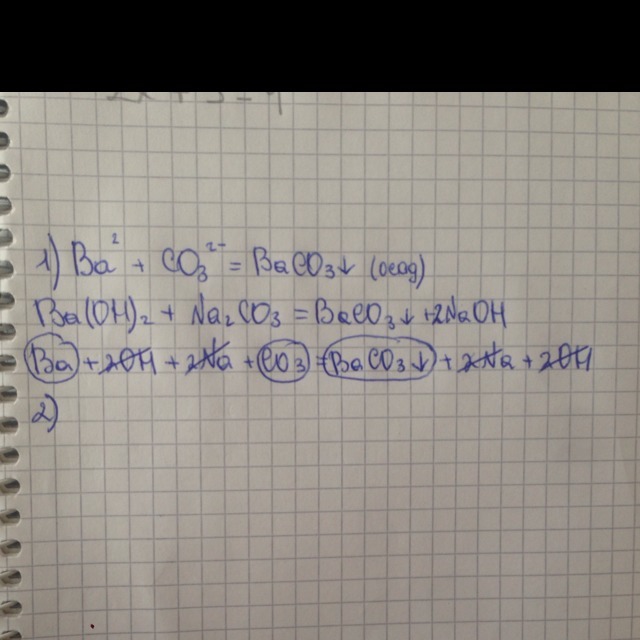 1) Ba² + CO₃²⁻ = BaCO₃↓ (осад)
Ba(OH)₂ + Na₂CO₃ = BaCO₃↓ + 2NaOH
Ba + 2OH + 2Na + CO₃ = BaCO₃↓ + 2Na + 2OH
2)